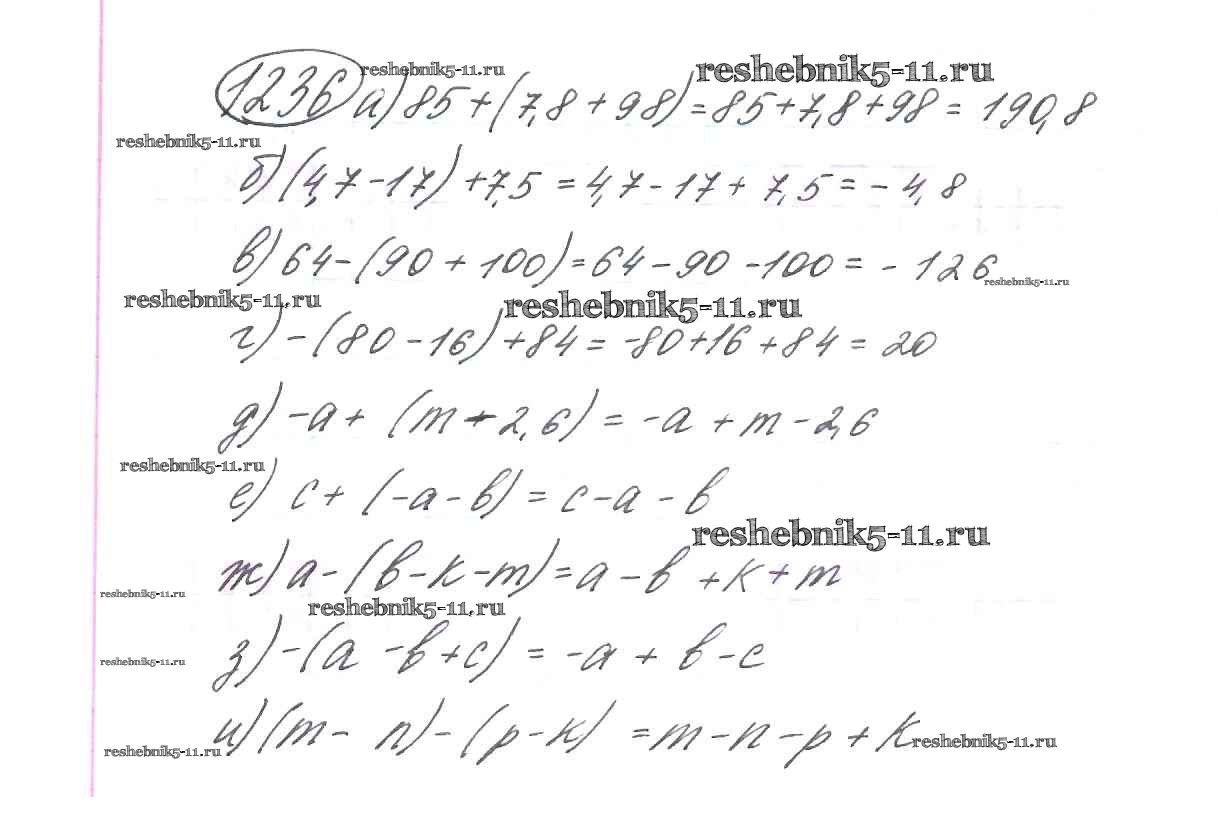 reshebnik5-11.ru reshebnik5-11.ru
1236 а) 85+(7,8+98)=85+7,8+98=190,8
reshebnik5-11.ru
б) (4,7-17)+7,5=4,7-17+7,5=-4,8
в) 64-(90+100)=64-90-100=-126
reshebnik5-11.ru
reshebnik5-11.ru reshebnik5-11.ru
г) -(80-16)+84=-80+16+84=20
д) -a+(m-2,6)=-a+m-2,6
reshebnik5-11.ru
е) c+(-a-в)=c-a-в
reshebnik5-11.ru
ж) a-(в-к-m)=a-в+к+m
reshebnik5-11.ru
reshebnik5-11.ru
з) -(a-в+c)=-a+в-c
reshebnik5-11.ru
и) (m-n)-(p-к)=m-n-p+к
reshebnik5-11.ru reshebnik5-11.ru